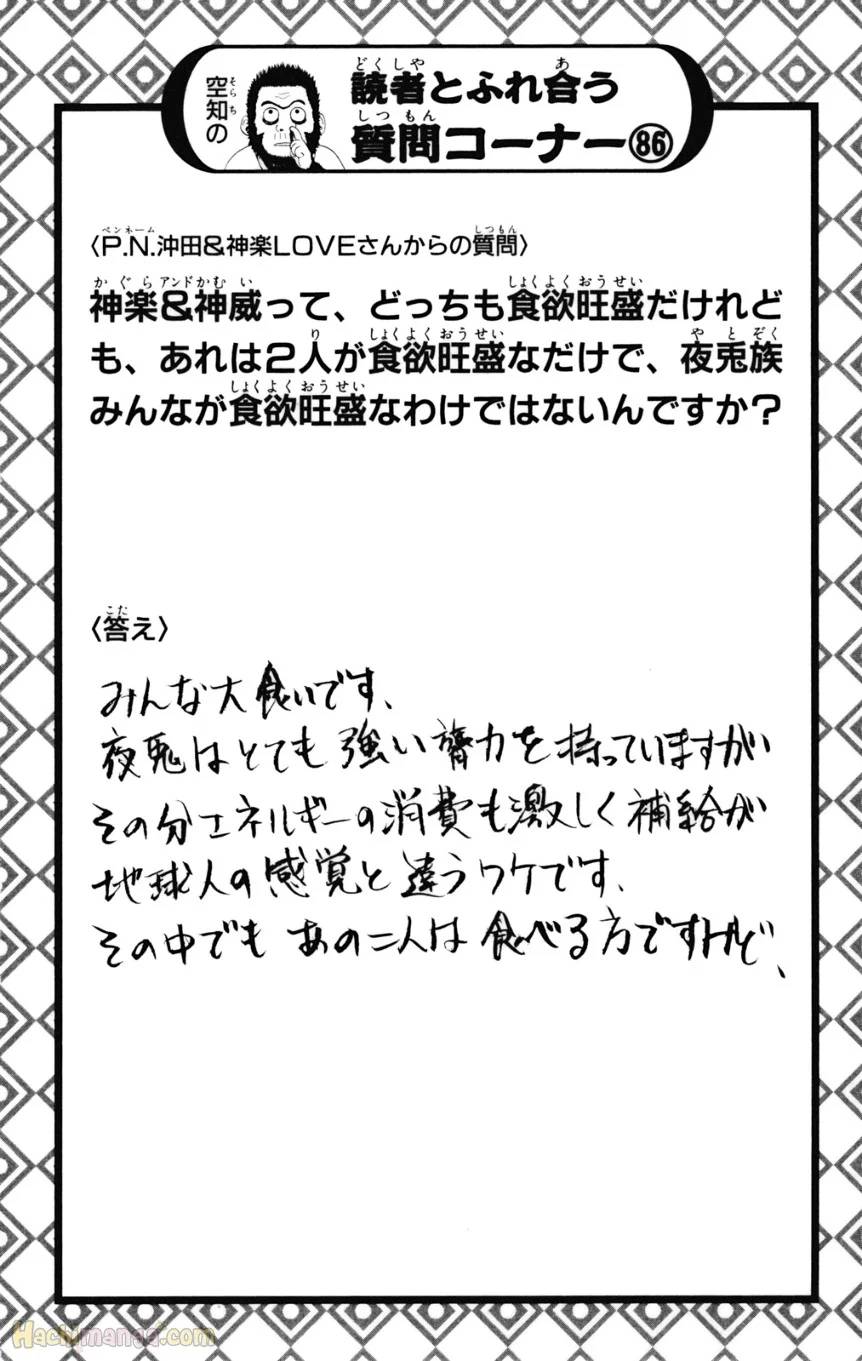 空知の
読者とふれ合う
質問コーナー86
〈P.N.沖田&神楽LOVEさんからの質問〉
神楽&神威って、どっちも食欲旺盛だけれど
も、あれは2人が食欲旺盛なだけで、夜兎族
みんなが食欲旺盛なわけではないんですか?
〈答え〉
みんな大食いです、
夜兎はとても強い膂力を持っていますがい
その分エネルギーの消費も激しく補給が
地球人の感覚と違うワケです、
その中でもあの二人は食べる方ですけど、
Hachimanga.com